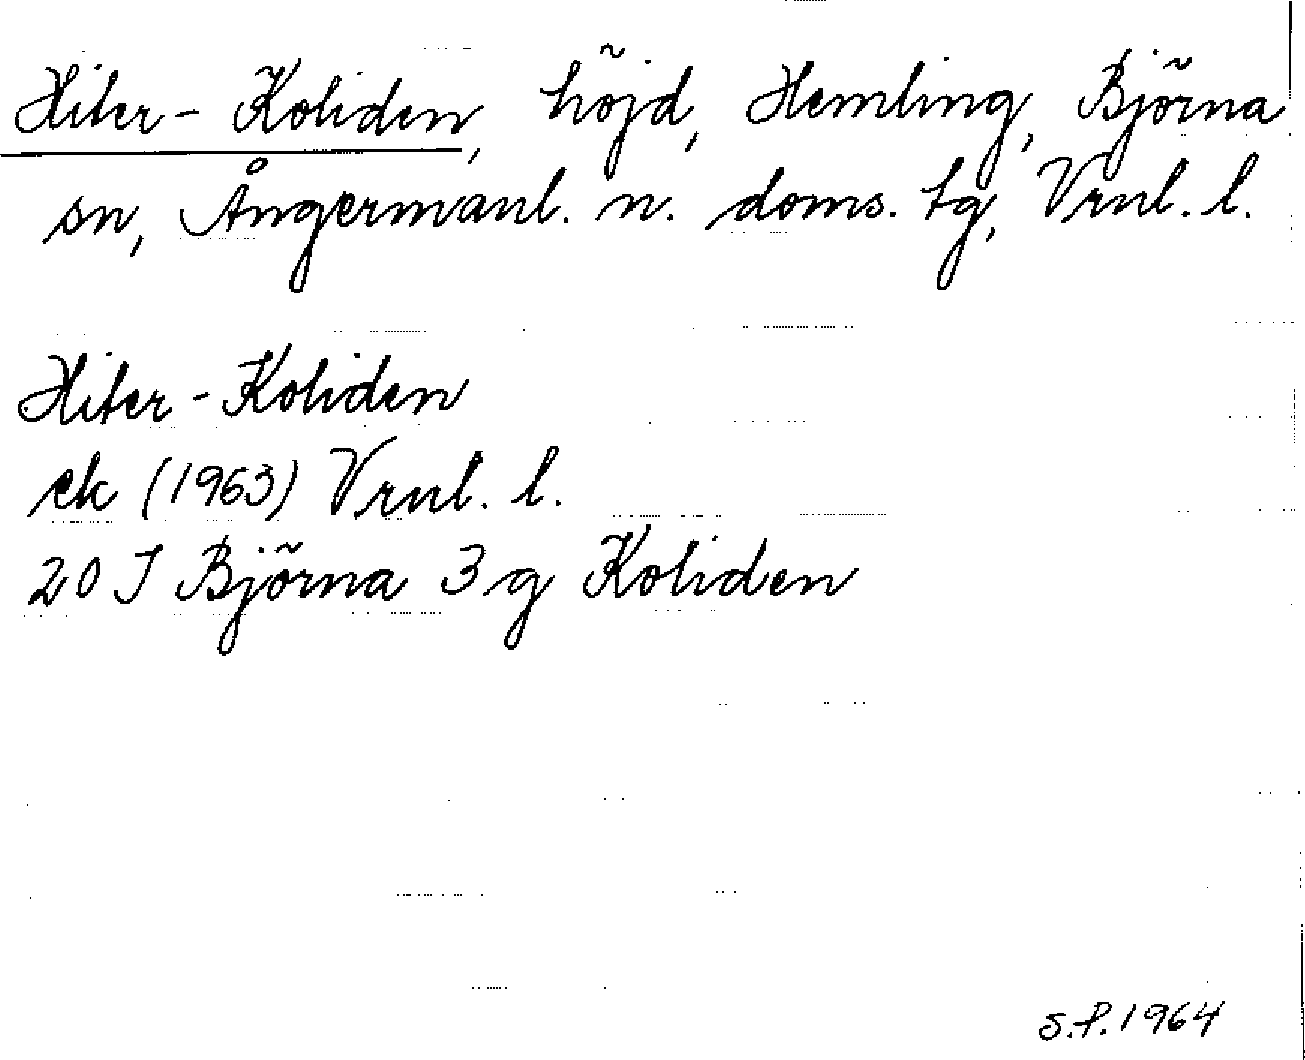 Hiter-Koliden, höjd, Hemling, Björna
sn, Ångermanl. n. doms. tg, Vrnl. l.
Hiter-Koliden
ek (1963) Vrnl. l.
20 J Björna 3 g Koliden
S.P. 1964